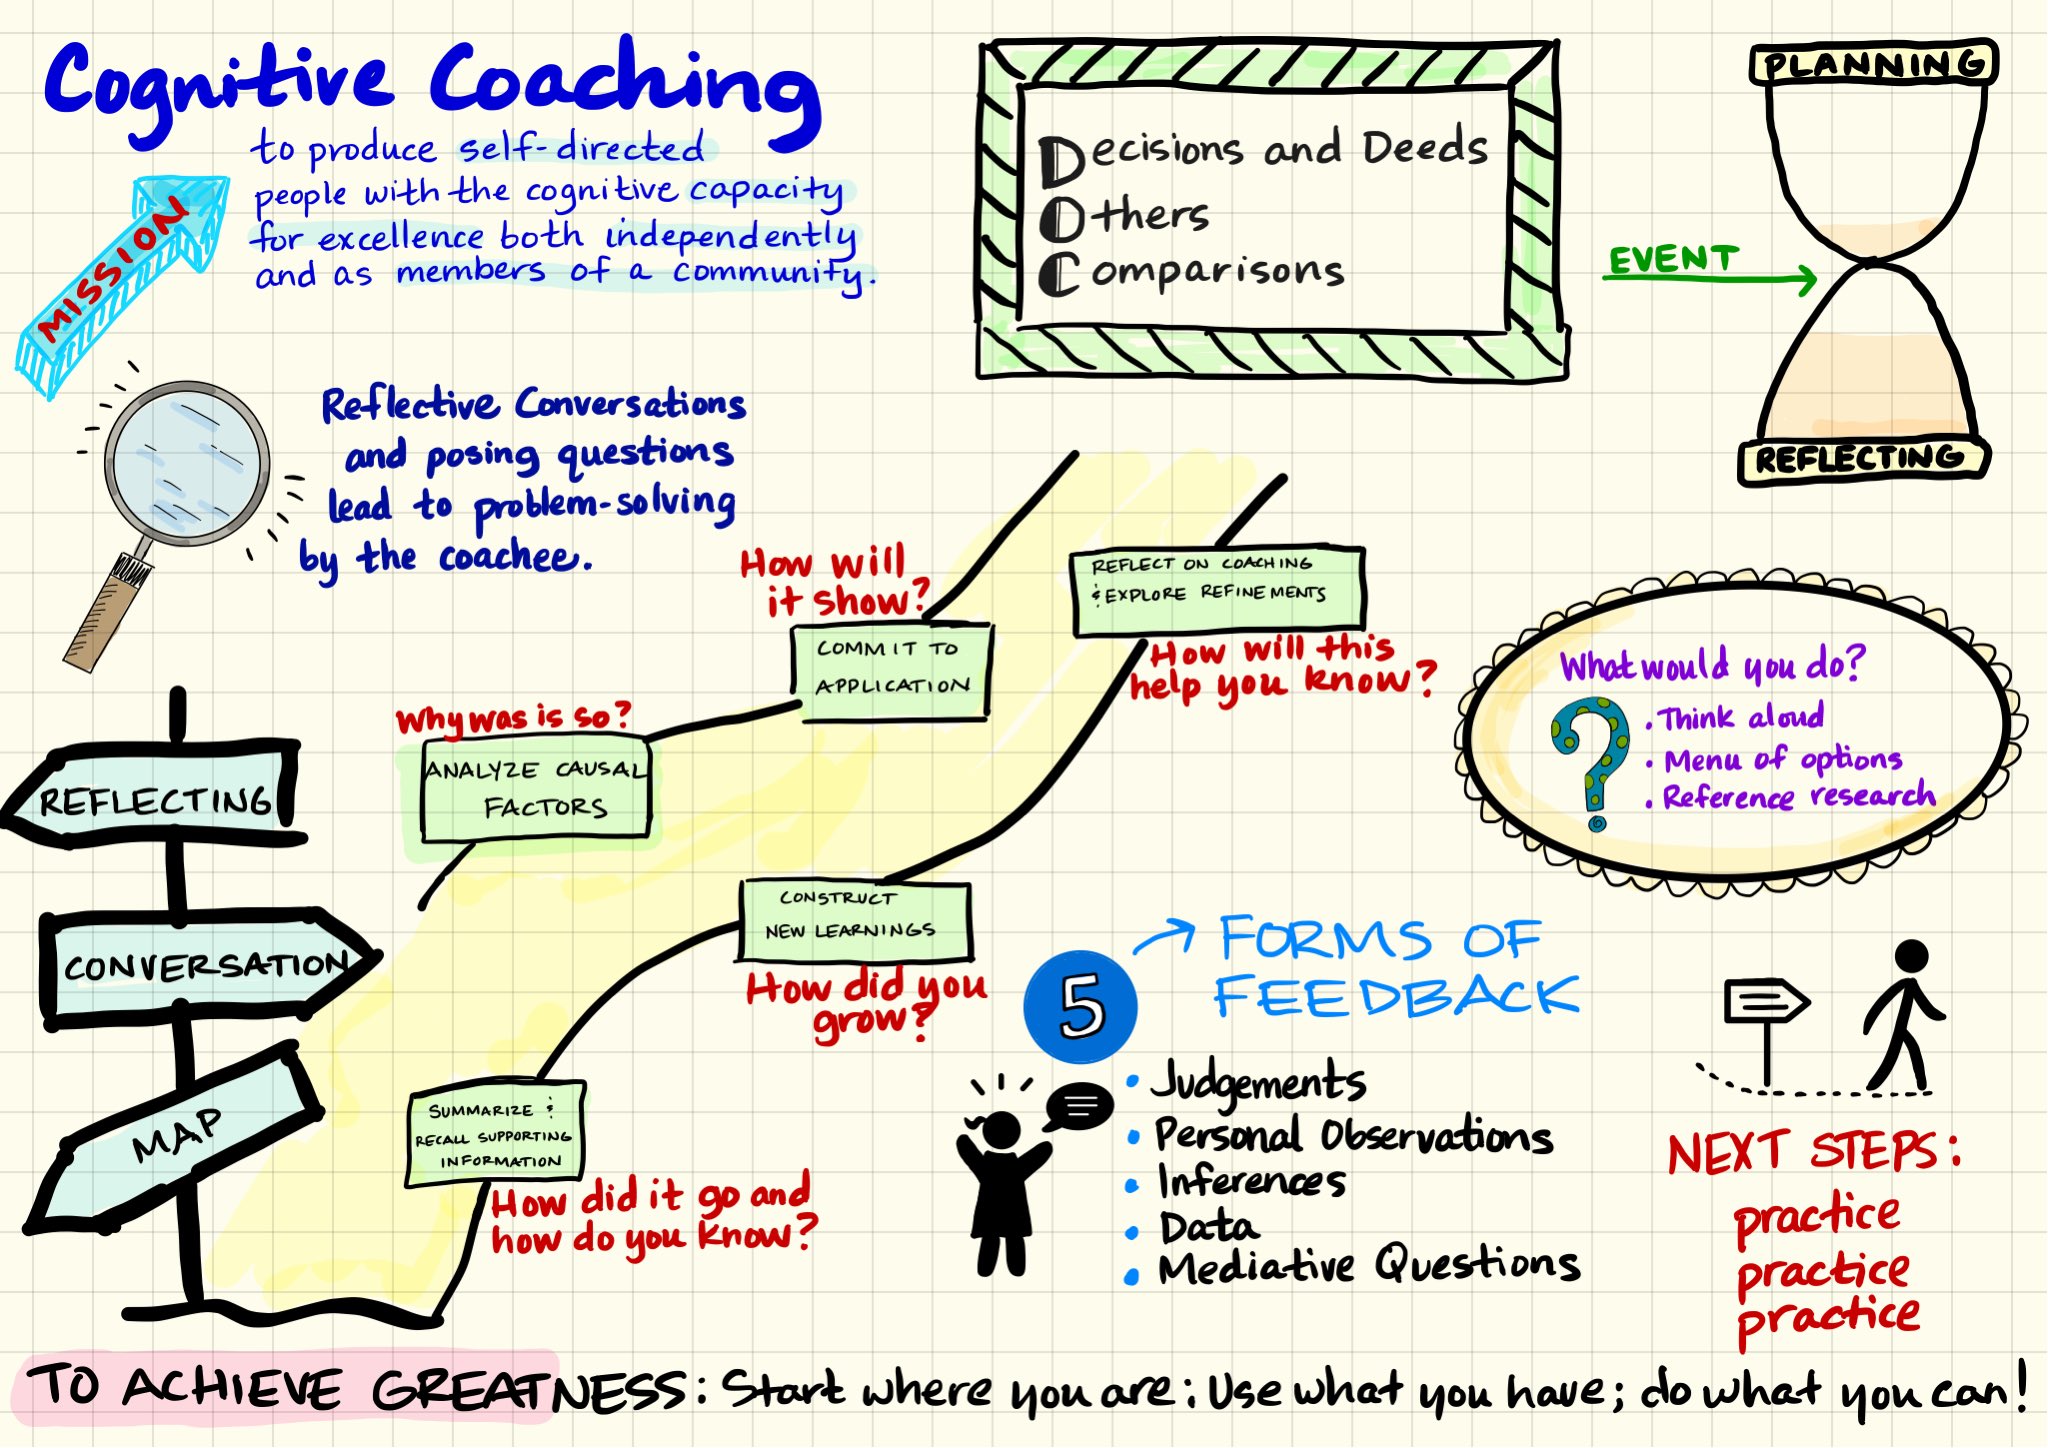 Cognitive Coaching
to produce self-directed
people with the cognitive capacity
for excellence both independently
and as members of a community.
MISSION
Decisions and Deeds
Others
Comparisons
PLANNING
EVENT
REFLECTING
Reflective Conversations
and posing questions
lead to problem-solving
by the coachee.
REFLECTING
CONVERSATION
MAP
Why was is so?
ANALYZE CAUSAL
FACTORS
How will
it show?
COMMIT TO
APPLICATION
REFLECT ON COACHING
& EXPLORE REFINEMENTS
How will this
help you know?
CONSTRUCT
NEW LEARNINGS
How did you
grow?
SUMMARIZE &
RECALL SUPPORTING
INFORMATION
How did it go and
how do you know?
What would you do?
?
• Think aloud
• Menu of options
• Reference research
5
FORMS OF
FEEDBACK
• Judgements
• Personal Observations
• Inferences
• Data
• Mediative Questions
NEXT STEPS:
practice
practice
practice
TO ACHIEVE GREATNESS: Start where you are; Use what you have; do what you can!